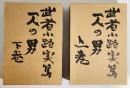 武者小路実篤
一人の男
上巻
武者小路実篤
一人の男
下巻